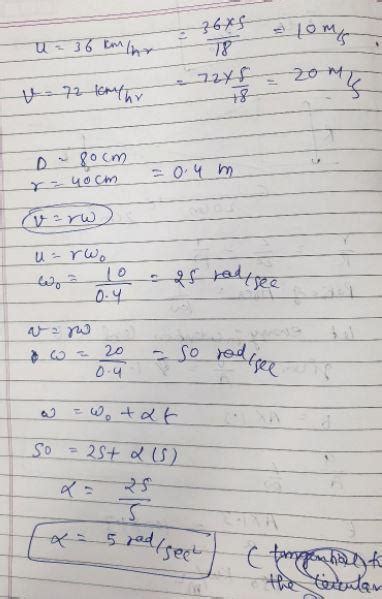 u = 36 km/hr = 36×5/18 = 10 m/s
v = 72 km/hr = 72×5/18 = 20 m/s
D = 80cm
r = 40cm = 0.4 m
v = rω
u = rω₀
ω₀ = 10/0.4 = 25 rad/sec
v = rω
ω = 20/0.4 = 50 rad/sec
ω = ω₀ + αt
50 = 25+ α(5)
α = 25/5
α = 5 rad/sec²
(tangential) to
the circular